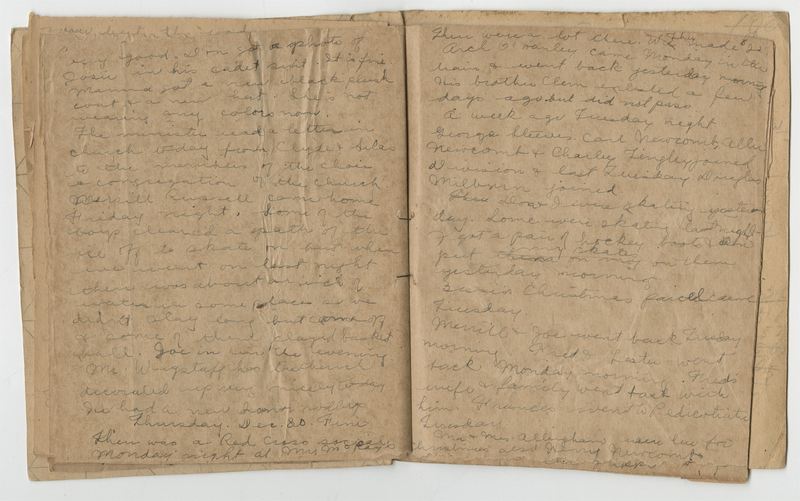 very good. Don got a photo of
Josie in his cadet suit. It is fine
Mamma got a new black plush
coat & a new hat. She's not
wearing any colors now.
The minister read a letter in
church today from Clyde &
to the members of the choir
& congregation of the church
Merrill Russell came home
Friday night. Some of the
boys cleared a path of the
ice off to skate on but when
we went on last night
there was about an inch of
water in some places so we
didn't stay long but came off
& some of them played basket
ball. Joe in in the evening
Mr. Wagstaff has the church
decorated up very nicely today
He had a new
Thursday. Dec. 30. Fine
There was a Red Cross
Monday night at Mrs McKay's
There were a lot there. We made $
Arch O'Hanley came Monday in the
train & went back yesterday morning
His brother Clem enlisted a few
days ago but did not pass.
A week ago Tuesday night
George Sleeves. Carl Newcomb, Allie
Newcomb & Charley Tingley joined
Division & last Tuesday Douglas
Milburn joined
Don & I were skating
day. Some were skating last night
I got a pair of hockey boots & Don
put my skates on them
yesterday morning
Christmas parcel came
Tuesday.
Merrill & Joe went back Friday
morning. Fred & Lester went
back Monday morning. Fred's
wife & family went back with
him. Francis went to Petitcodiac
Tuesday
Mr. & Mrs. Allingham were here for
Christmas also Henry Newcomb